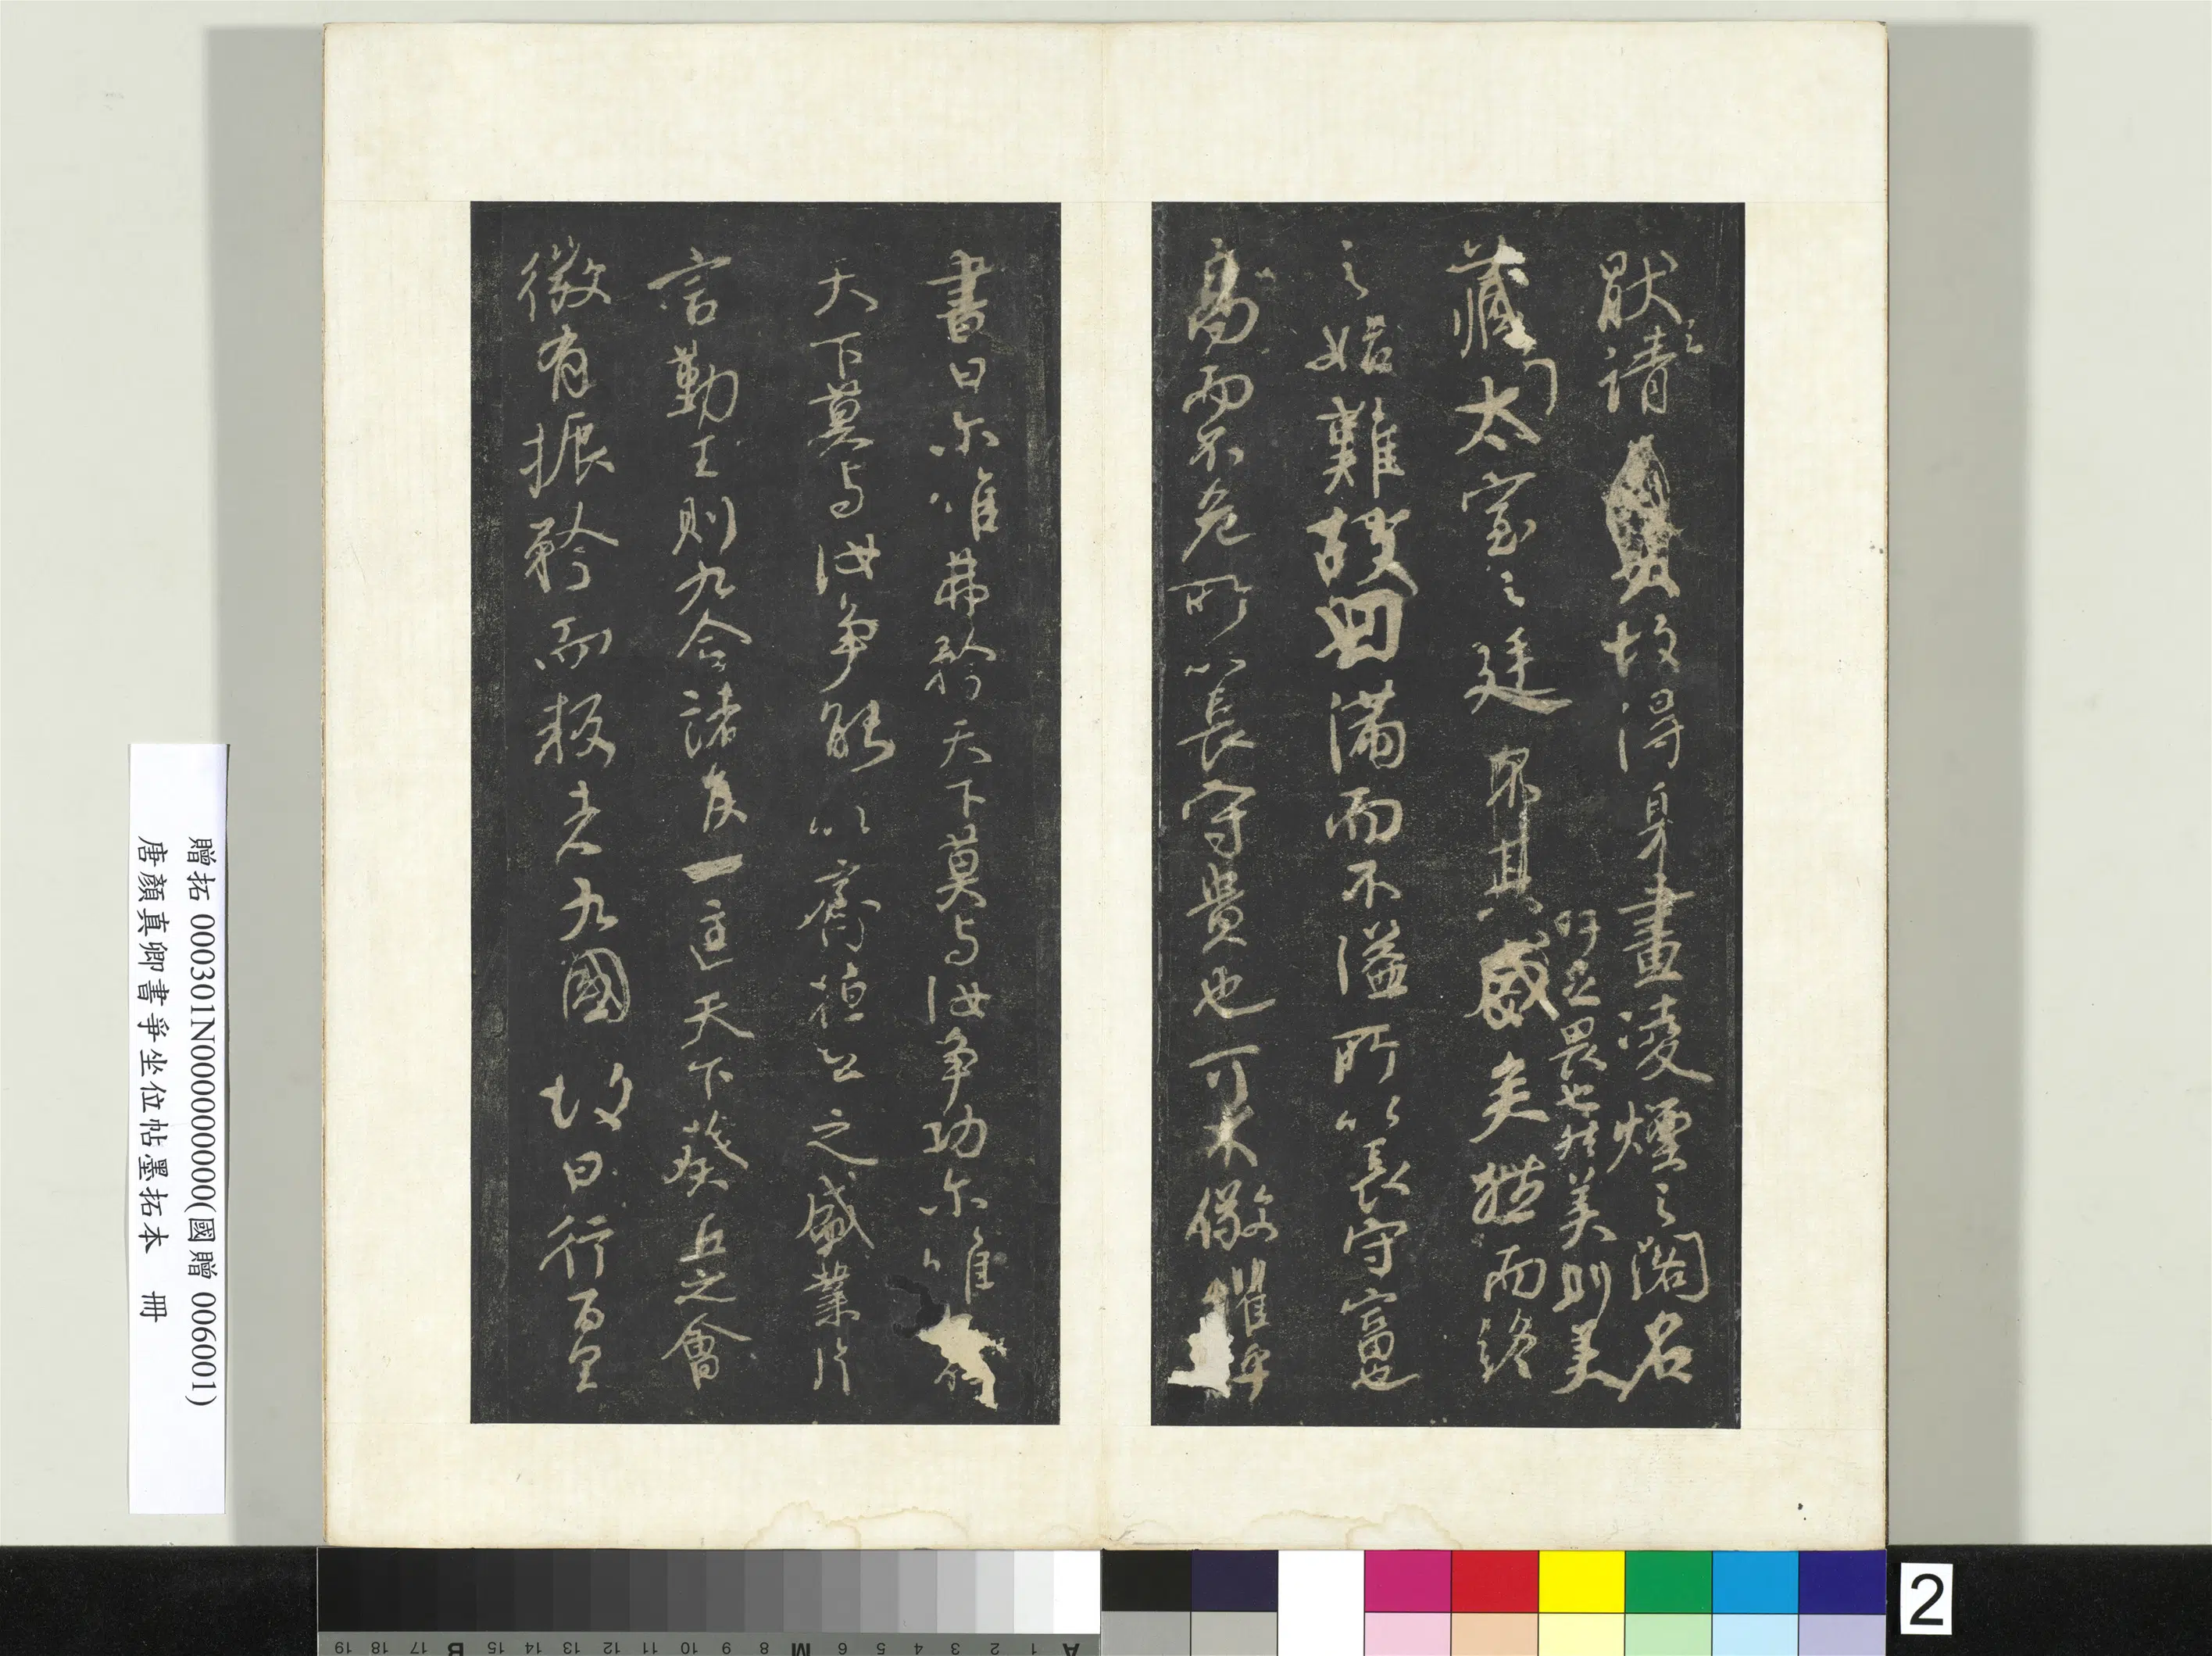 猒之請
故得身畫凌煙之閣名
藏太室之廷
吁足畏也然美則美
矣其盛矣然而終
之始難故曰滿而不溢所以長守富也
高而不危所以長守貴也可不儆懼乎
書曰尔唯弗矜天下莫与汝争功尔唯弗
天下莫与汝争能以齊桓公之盛業片
言勤王則九合諸侯一匡天下葵丘之會
微有振矜而叛者九國故曰行百里
贈拓 000301N000000000(國贈 006001)
唐顏真卿書爭坐位帖墨拓本 冊
2
A 1 2 3 4 5 6 7 8 9 10 11 12 13 14 15 16 17 18 19
M
B